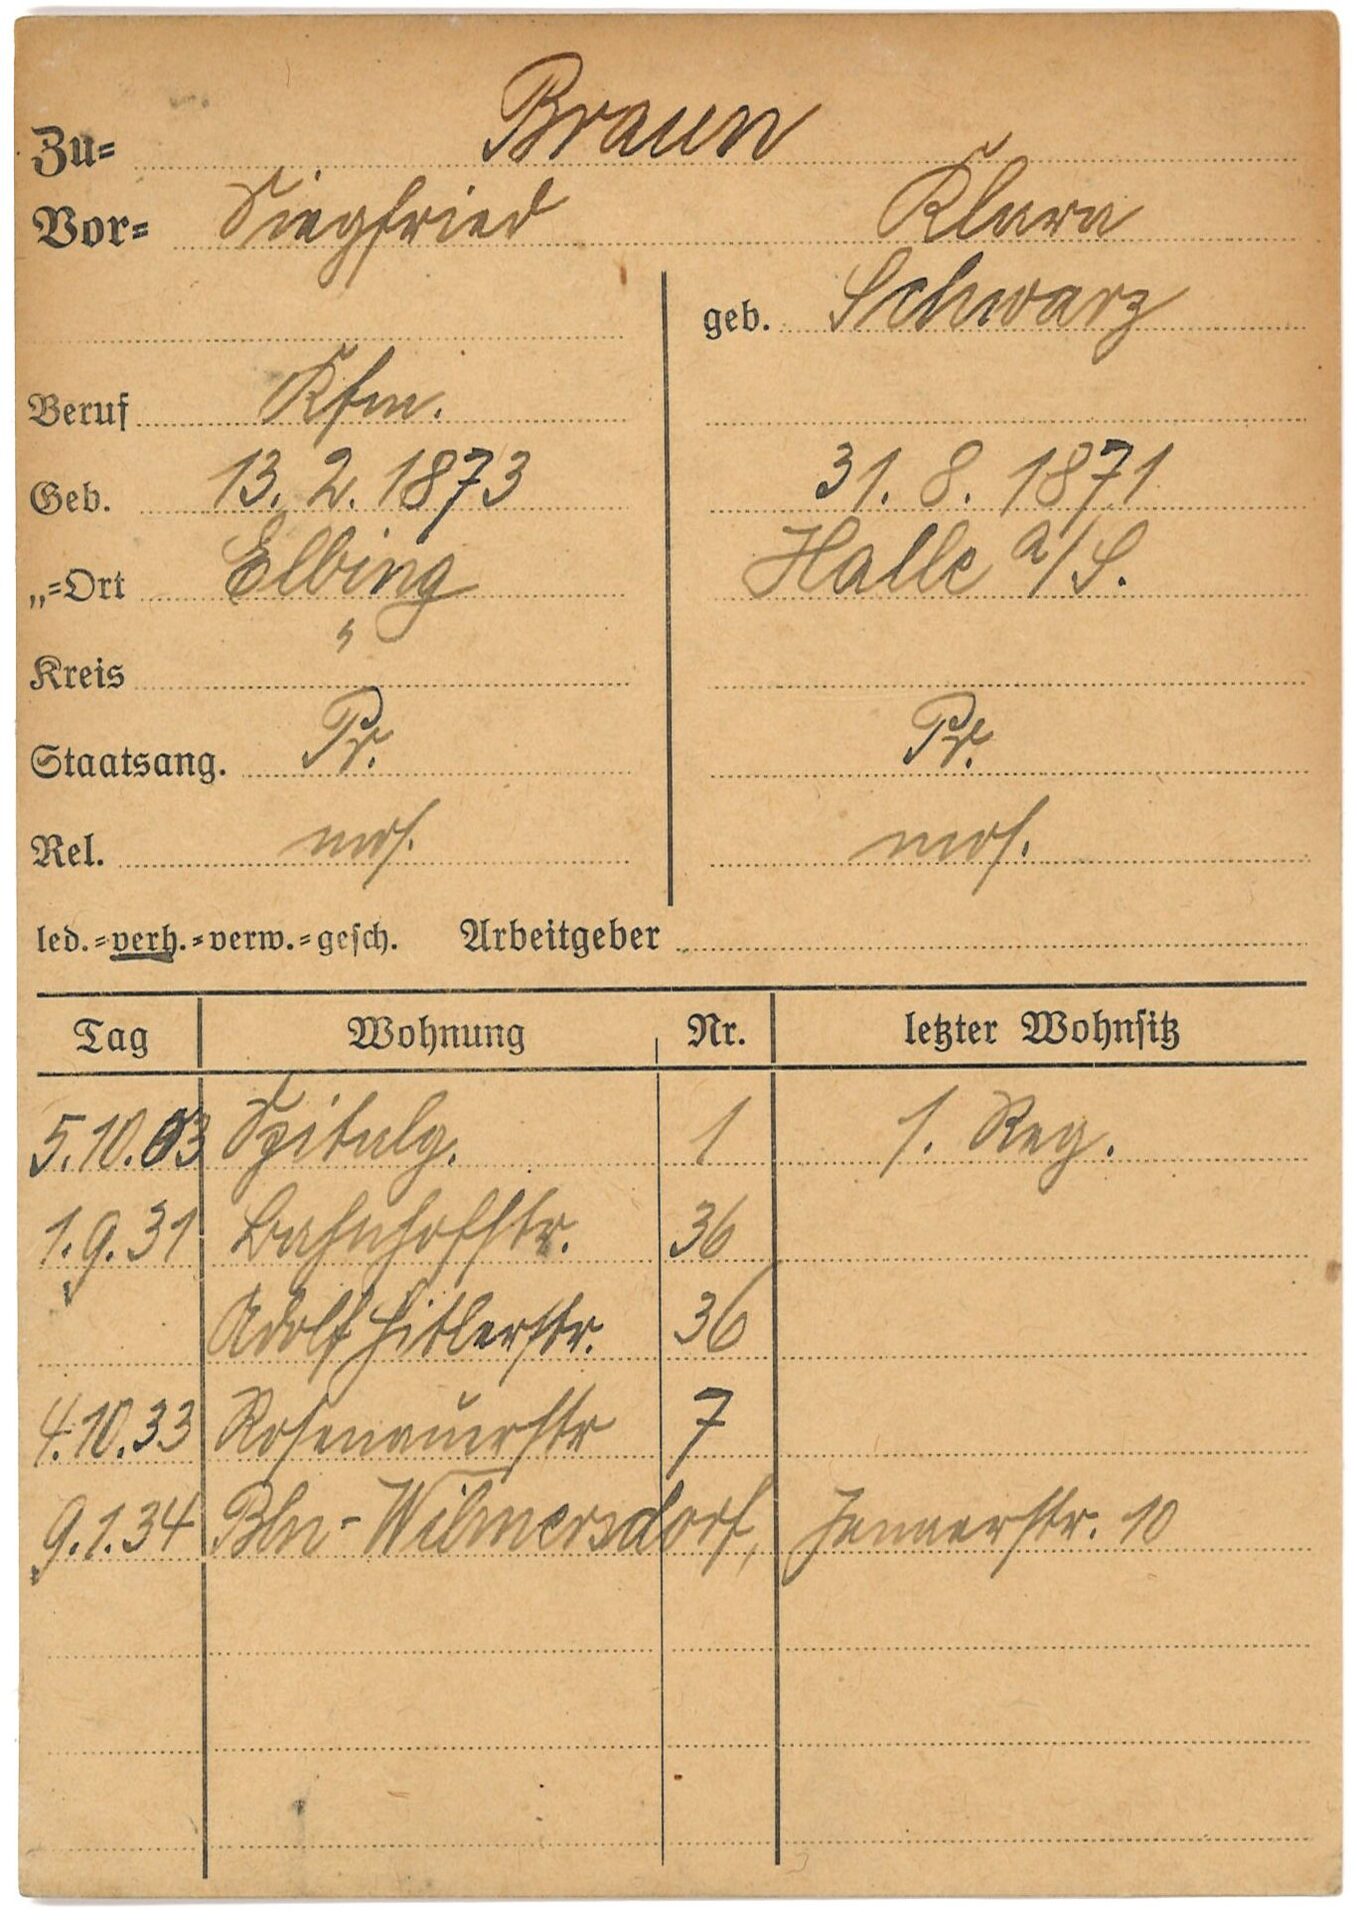 Zu= Braun
Vor= Siegfried Klara
geb. Schwarz
Beruf Kfm.
Geb. 13. 2. 1873 31. 8. 1871
„=Ort Elbing Halle a/S.
Kreis "
Staatsang. Pr. Pr.
Rel. mos. mos.
led.=verh.=verw.=gesch. Arbeitgeber
Tag Wohnung Nr. letzter Wohnsitz
5.10.03 Spitalg. 1 1. Reg.
1.9.31 Bahnhofstr. 36
Adolf Hitlerstr. 36
4.10.33 Rosenauerstr 7
9.1.34 Bln-Wilmersdorf, Jenaerstr. 10